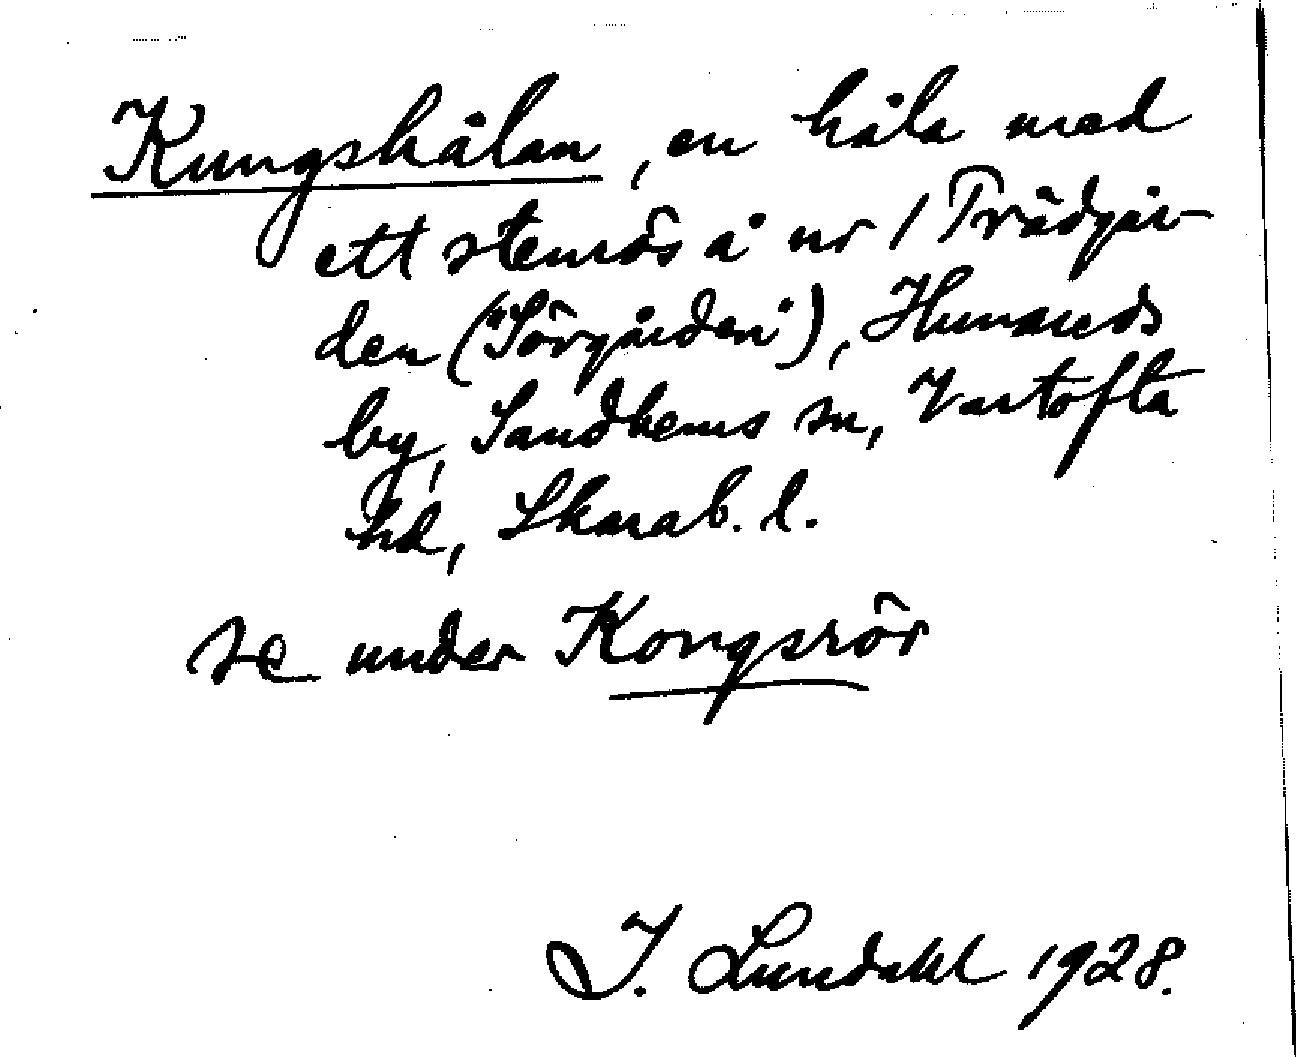 Kungshålan, en håla med
ett stenrös å nr 1 Trädgår-
den ("Sörgården"), Hunareds
by, Sandhems sn, Vartofta
hd, Skarab. l.
se under Kongsrör
I. Lundahl 1928.